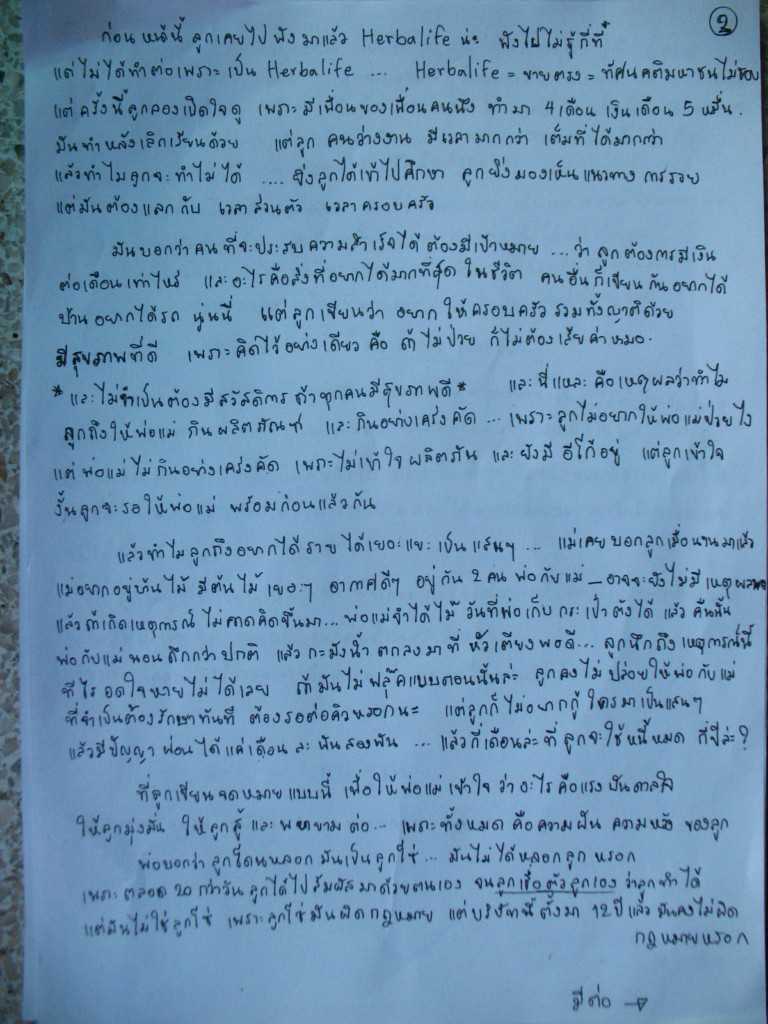 2
ก่อนหน้านี้ ลูกเคยไปฟังมาแล้ว Herbalife น่ะ ฟังไม่รู้กี่ที่
แต่ไม่ได้ทำต่อเพราะเป็น Herbalife ... Herbalife = ขายตรง = ทัศนคติมหาชนไม่ชอบ
แต่ครั้งนี้ลูกลองเปิดใจดู เพราะมีเพื่อนของเพื่อนคนนึง ทำมา 4 เดือน เงินเดือน 5 หมื่น.
มันทำหลังเลิกเรียนด้วย แต่ลูก คนว่างงาน มีเวลามากกว่า เต็มที่ได้มากกว่า
แล้วทำไมลูกจะทำไม่ได้ .... ยิ่งลูกได้เข้าไปศึกษา ลูกยิ่งมองเห็นแนวทาง การรวย
แต่มันต้องแลกกับ เวลาส่วนตัว เวลาครอบครัว
มันบอกว่าคนที่จะประสบความสำเร็จได้ ต้องมีเป้าหมาย ... ว่า ลูกต้องการมีเงิน
ต่อเดือนเท่าไหร่ และอะไรคือสิ่งที่อยากได้มากที่สุด ในชีวิต คนอื่นก็เขียนกันอยากได้
บ้านอยากได้รถ นู่นนี่ แต่ลูกเขียนว่า อยากให้ครอบครัว รวมทั้งญาติด้วย
มีสุขภาพที่ดี เพราะคิดไว้อย่างเดียว คือ ถ้าไม่ป่วย ก็ไม่ต้องเสียค่าหมอ.
*และไม่จำเป็นต้องมีสวัสดิการ ถ้าทุกคนมีสุขภาพดี* และนี่แหละ คือเหตุผลว่าทำไม
ลูกถึงให้พ่อแม่ กินผลิตภัณฑ์ และกินอย่างเคร่งคัด ... เพราะลูกไม่อยากให้พ่อแม่ป่วยไง
แต่พ่อแม่ไม่กินอย่างเคร่งคัด เพราะไม่เข้าใจผลิตภัน และยังมีอีโก้อยู่ แต่ลูกเข้าใจ
งั้นลูกจะรอให้พ่อแม่ พร้อมก่อนแล้วกัน
แล้วทำไมลูกถึงอยากได้รายได้เยอะแยะเป็นแสนๆ ... แม่เคยบอกลูกเมื่อนานมาแล้ว
แม่อยากอยู่บ้านไม้ มีต้นไม้เยอะๆ อากาศดีๆ อยู่กัน 2 คน พ่อกับแม่ – อาจจะยังไม่มีเหตุผลพอ
แล้วถ้าเกิดเหตุการณ์ ไม่คาดคิดขึ้นมา ... พ่อแม่จำได้ไม๊ วันที่พ่อเก็บกระเป๋าตังได้ แล้ว คืนนั้น
พ่อกับแม่นอนดึกกว่าปกติ แล้วกะมังน้ำ ตกลงมาที่ หัวเตียงพอดี... ลูกนึกถึง เหตุการณ์นี้
ทีไร อดใจหายไม่ได้เลย ถ้ามันไม่ฟลุ๊คแบบตอนนั้นล่ะ ลูกคงไม่ปล่อยให้พ่อกับแม่
ที่จำเป็นต้องรักษาทันที ต้องรอต่อคิวหรอกนะ แต่ลูกก็ไม่อยากกู้ใครมาเป็นแสนๆ
แล้วมีปัญญาผ่อนได้แค่เดือนละพันสองพัน ... แล้วกี่เดือนล่ะที่ลูกจะใช้หนี้หมด กี่ปีล่ะ?
ที่ลูกเขียนจดหมายแบบนี้ เพื่อให้พ่อแม่เข้าใจว่าอะไรคือแรงบันดาลใจ
ให้ลูกมุ่งมั่น ให้ลูกสู้ และพยายามต่อ... เพราะทั้งหมด คือความฝัน ความหวัง ของลูก
พ่อบอกว่า ลูกโดนหลอก มันเป็นลูกโซ่ ... มันไม่ได้หลอกลูก หรอก
เพราะ ตลอด 20 กว่าวัน ลูกได้ไปสัมผัสมาด้วยตนเอง จนลูกเชื่อตัวลูกเอง ว่าลูกทำได้
แต่มันไม่ใช่ลูกโซ่ เพราะลูกโซ่มันผิดกฎหมาย แต่บริษัทนี้ตั้งมา 12 ปีแล้ว มันคงไม่ผิด
กฎหมายหรอก
มีต่อ →